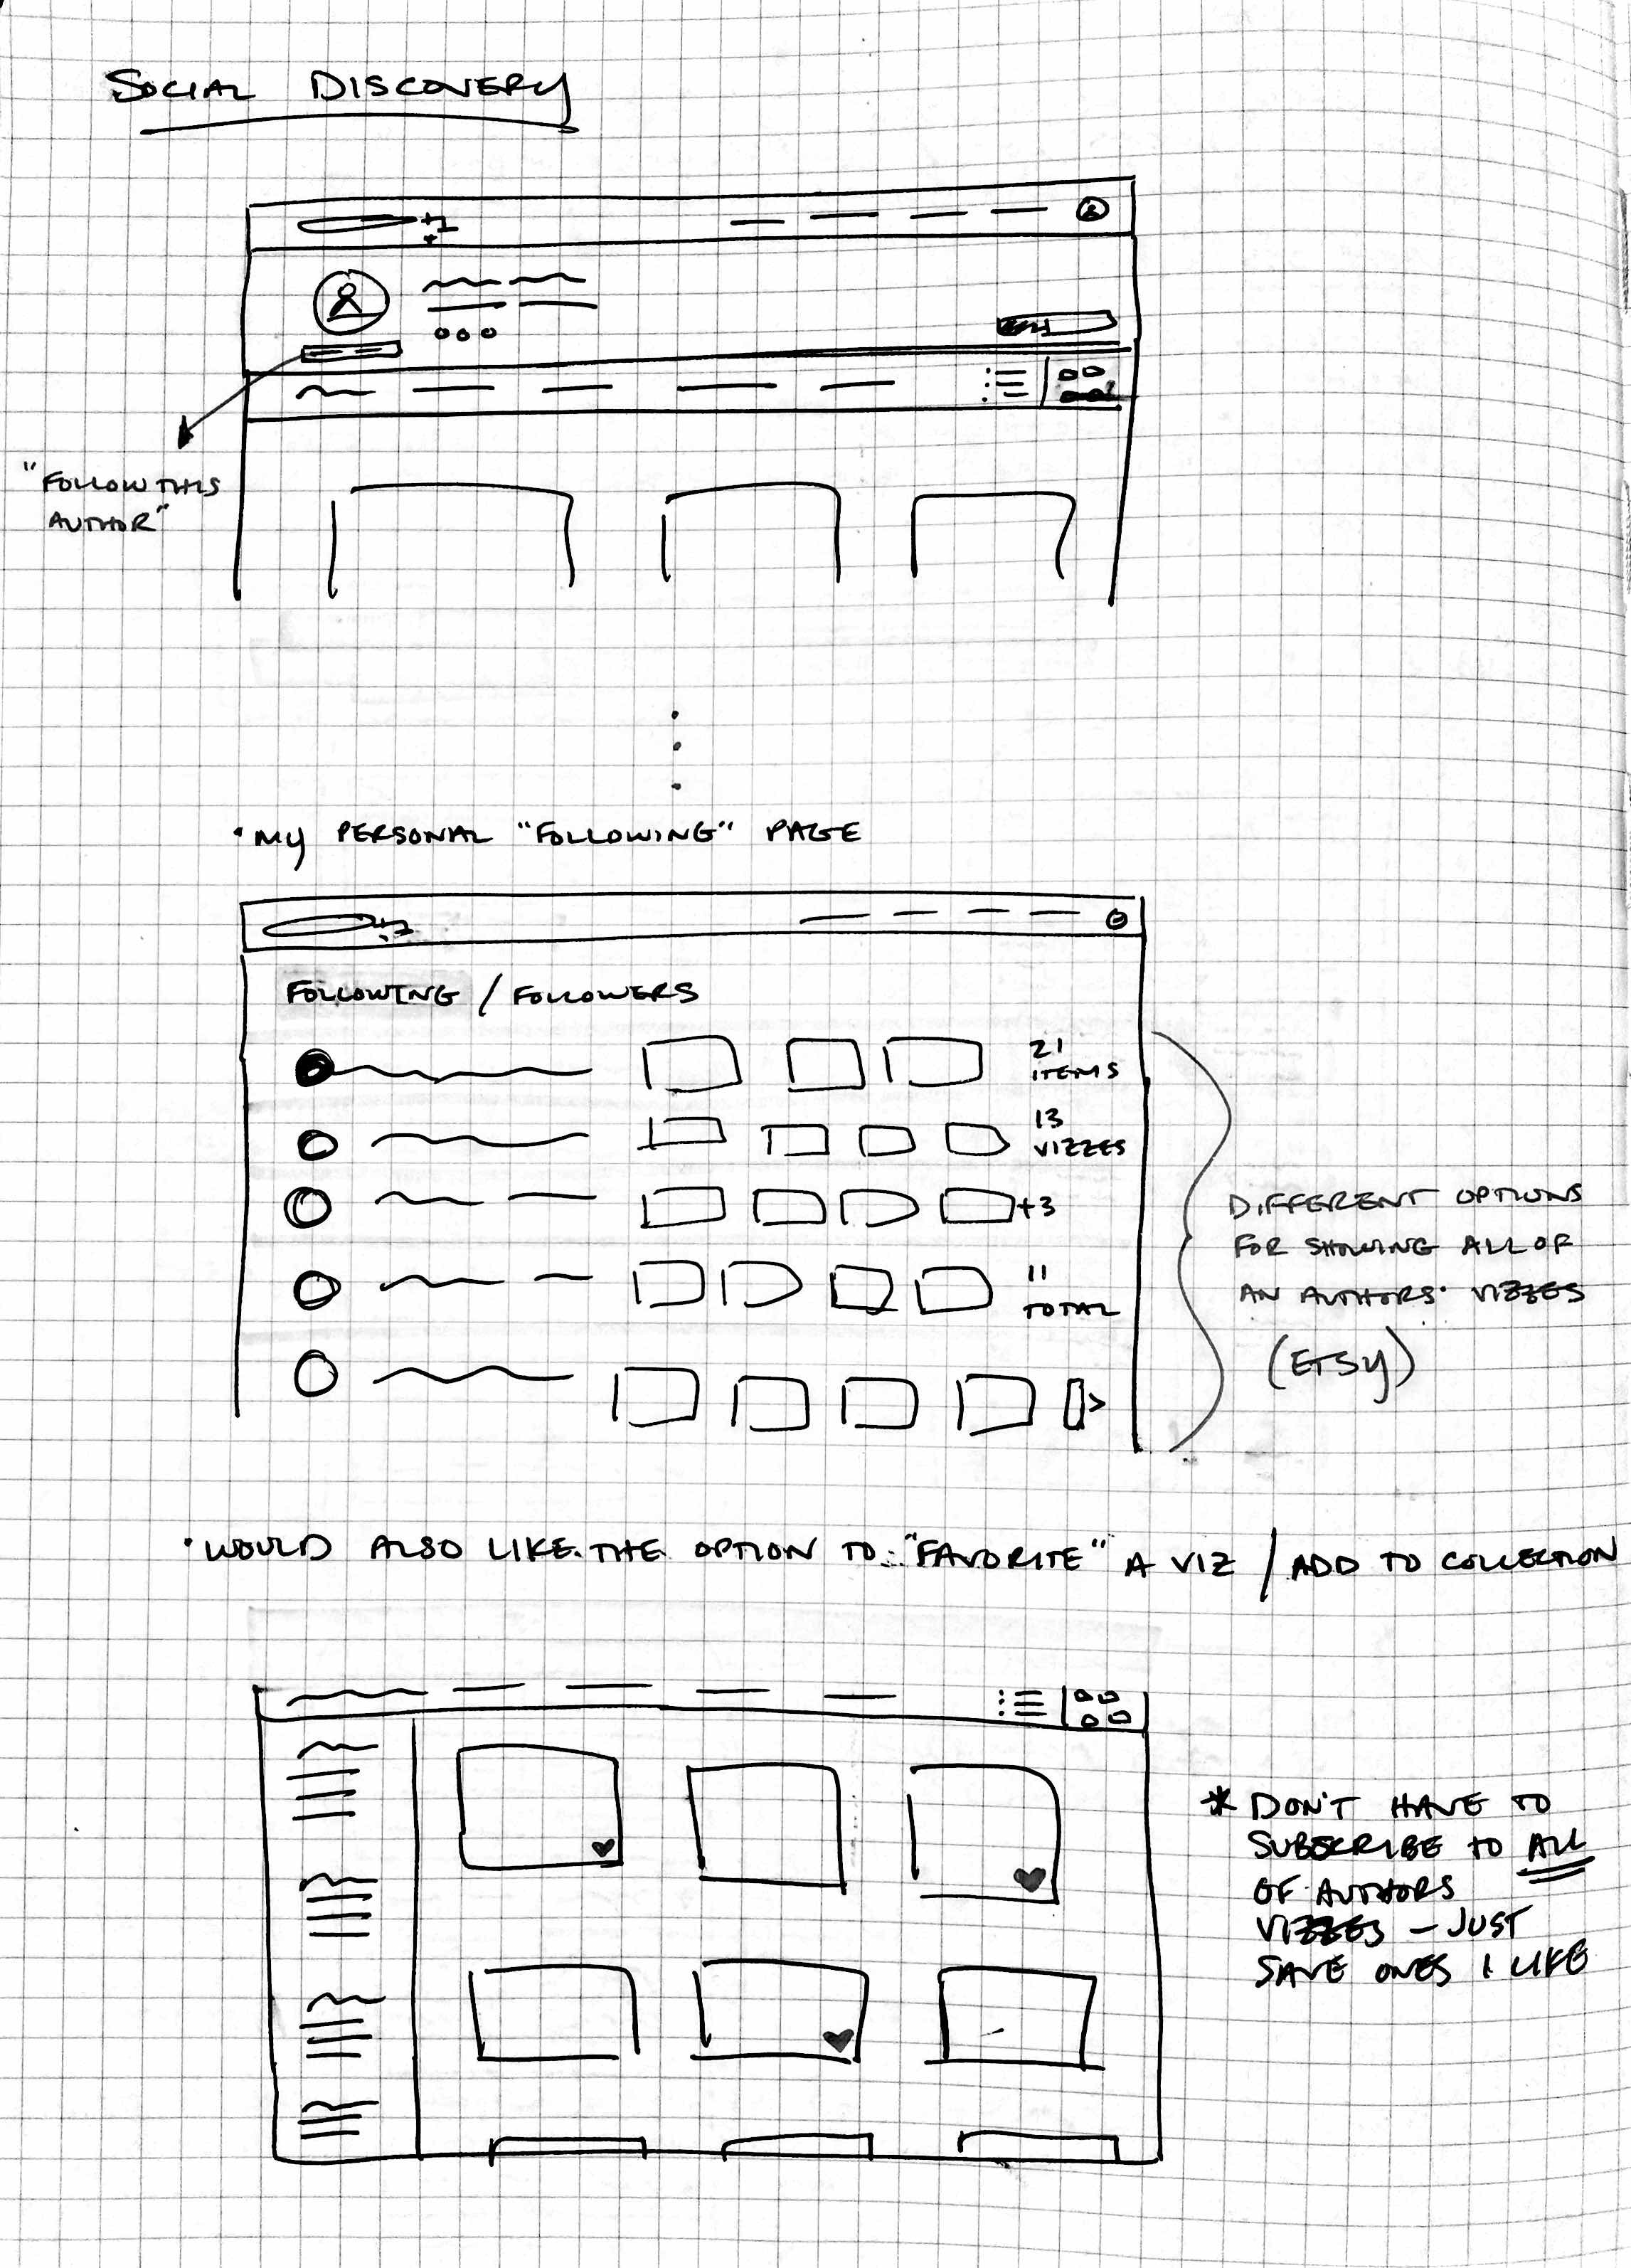 SOCIAL DISCOVERY
"FOLLOW THIS
AUTHOR"
• MY PERSONAL "FOLLOWING" PAGE
FOLLOWING / FOLLOWERS
21
ITEMS
13
VIZZES
+3
11
TOTAL
>
DIFFERENT OPTIONS
FOR SHOWING ALL OF
AN AUTHORS' VIZZES
(ETSY)
• WOULD ALSO LIKE THE OPTION TO "FAVORITE" A VIZ / ADD TO COLLECTION
* DON'T HAVE TO
SUBSCRIBE TO ALL
OF AUTHORS
VIZZES – JUST
SAVE ONES I LIKE